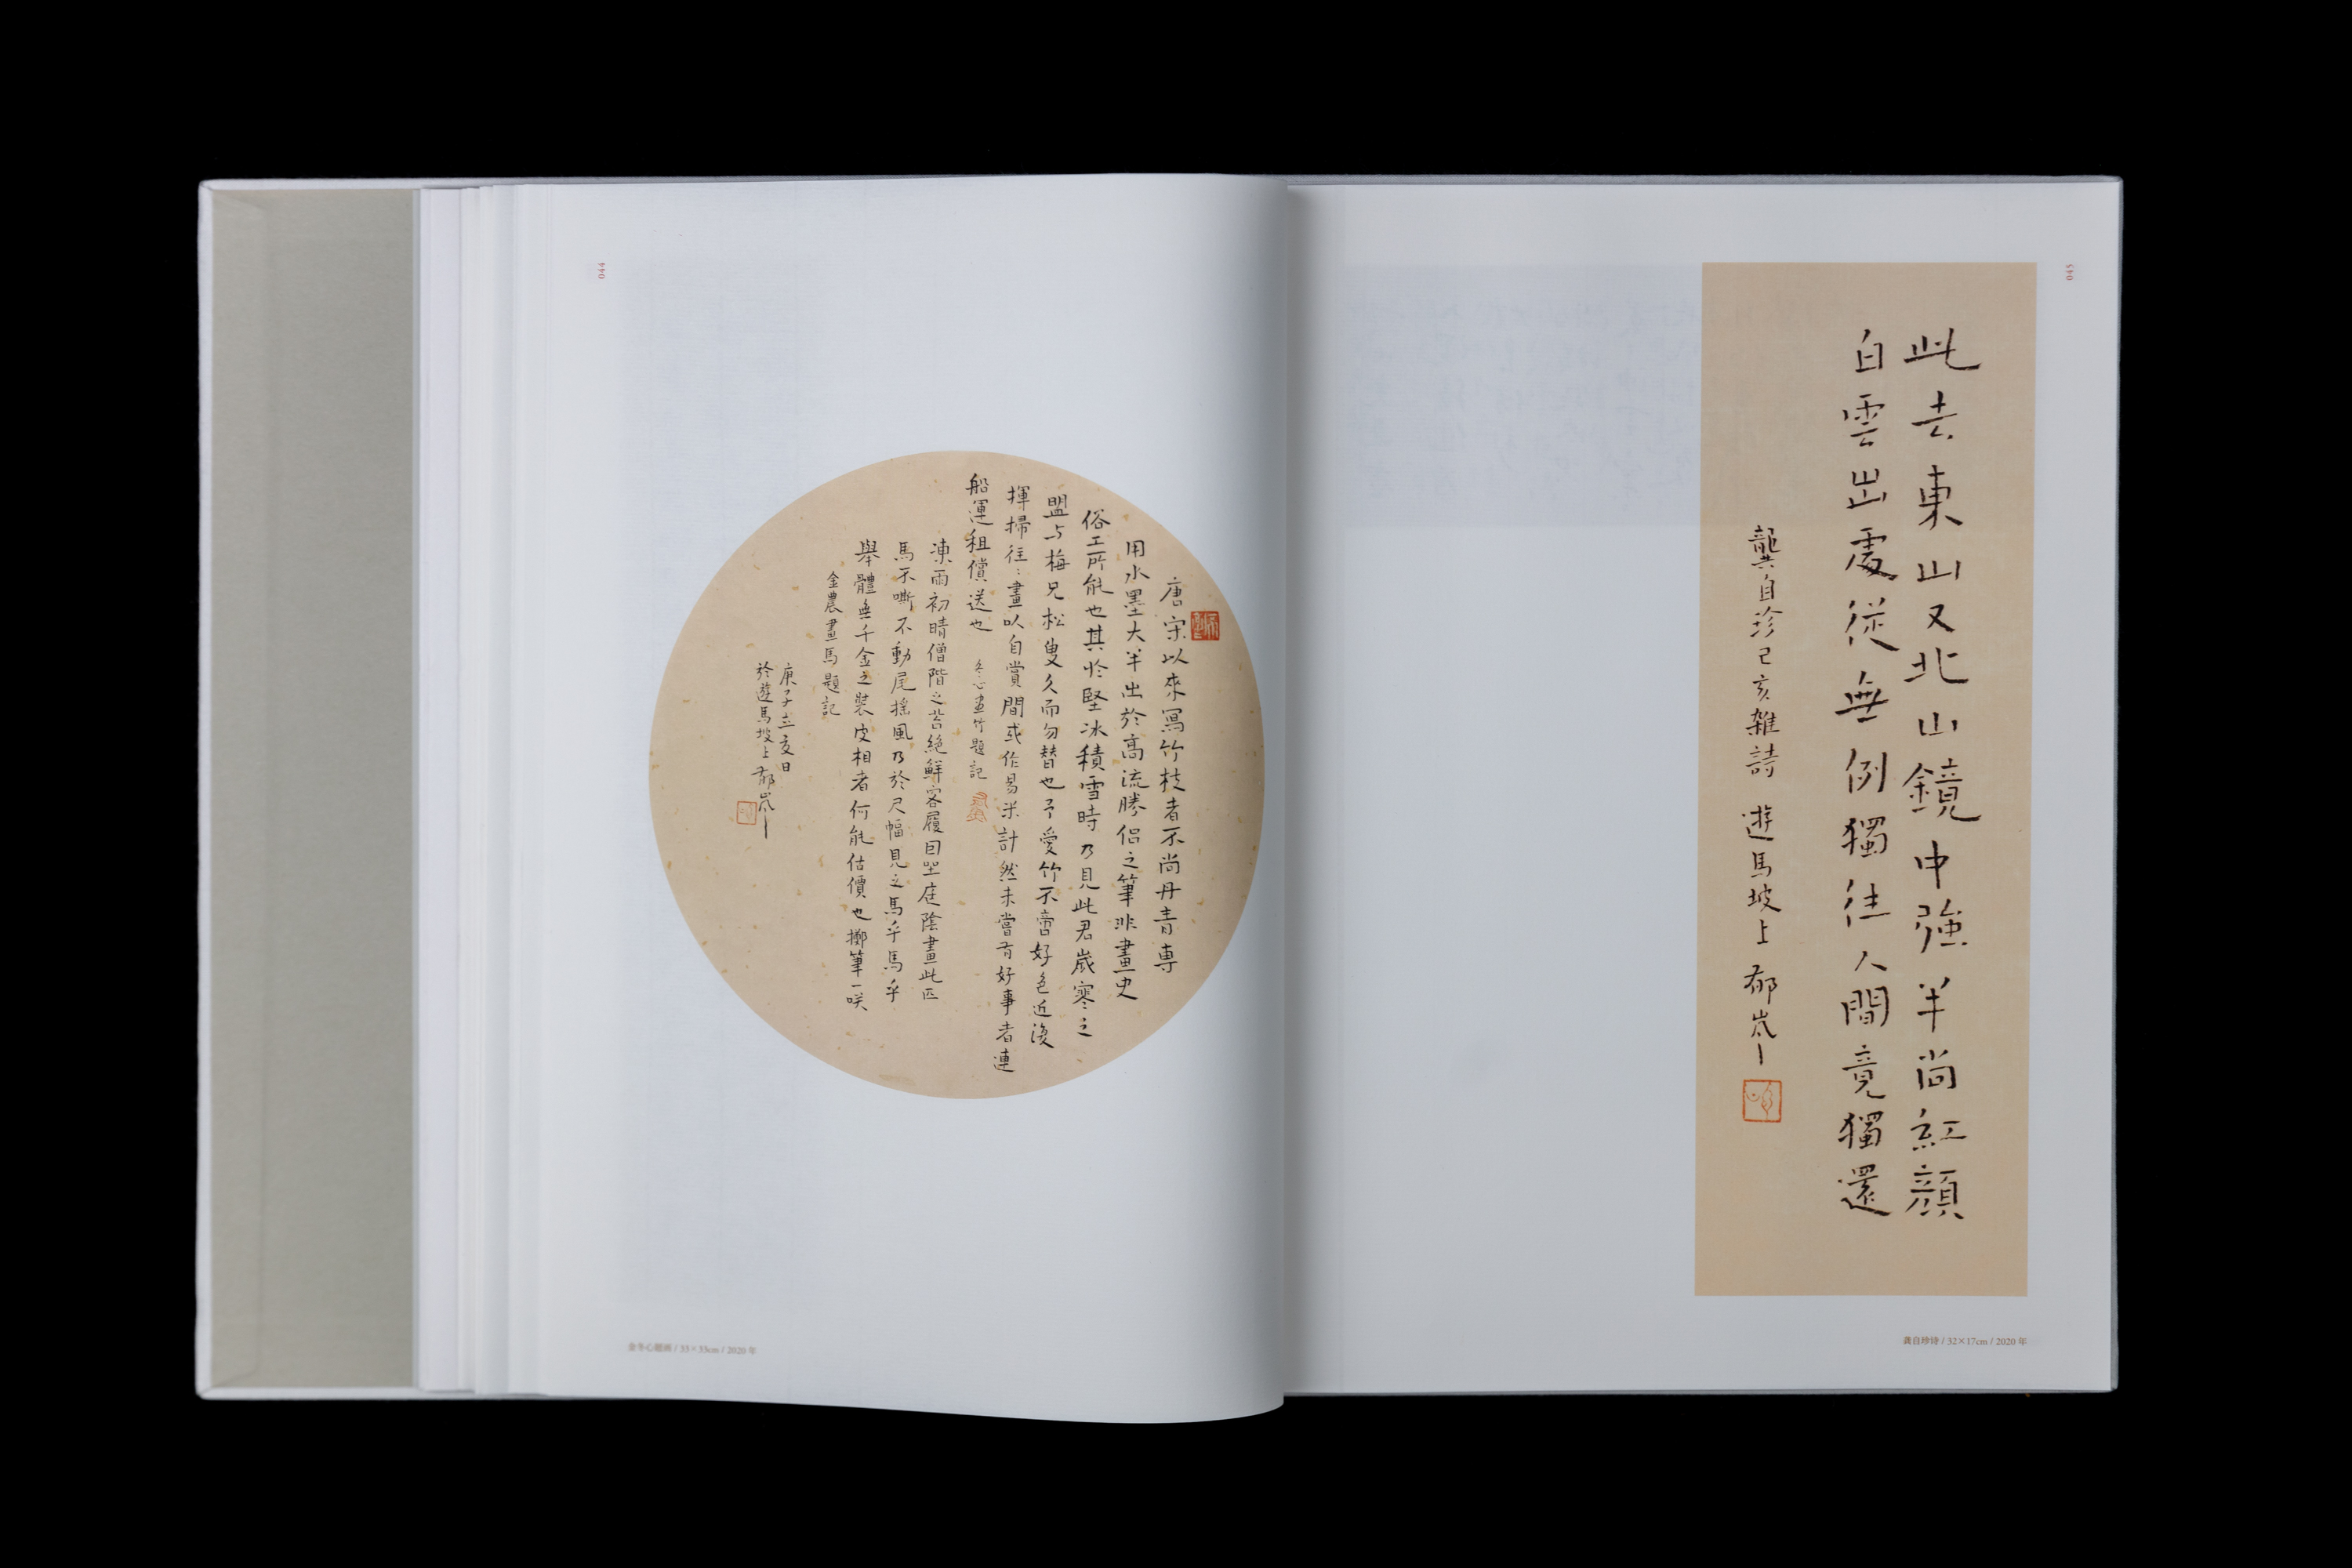 044
唐宋以來寫竹枝者不尚丹青專
用水墨大半出於高流勝侣之筆非畫史
俗工所能也其於堅冰積雪時乃見此君歲寒之
盟与梅兄松叟久而勿替也予愛竹不啻好色近復
揮掃往:畫以自賞間或作易米計然未嘗有好事者連
船運租償送也 冬心畫竹題記
凍雨初晴僧階之苔絶鮮客履因坐庭陰畫此匹
馬不嘶不動尾摇風乃於尺幅見之馬乎馬乎
舉體無千金之裝皮相者何能估價也擲筆一咲
金農畫馬題記
庚子立夏日
於遊馬坡上郁岚
金冬心题画 / 33×33cm / 2020 年
045
此去東山又北山鏡中強半尚紅顔
白雲出處從無例獨往人間竟獨還
龔自珍己亥雑詩 遊馬坡上 郁岚
龚自珍诗 / 32×17cm / 2020 年